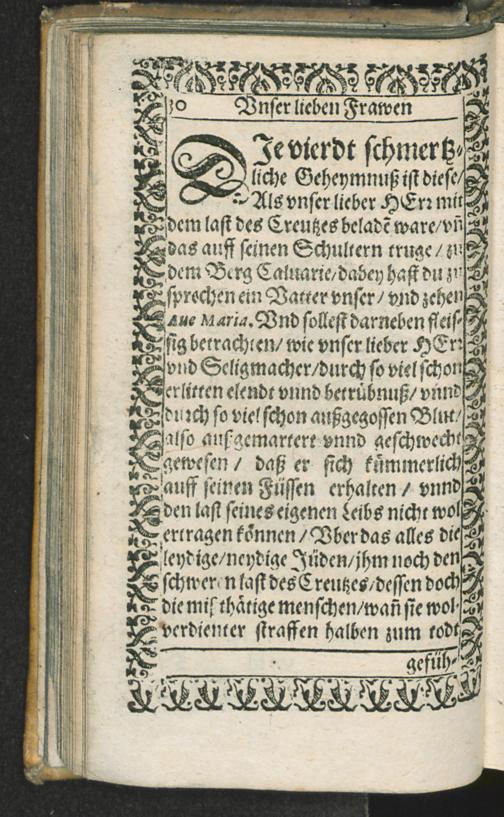 30 Vnser lieben Frawen
DIe vierdt schmertz⸗
liche Geheymnuß ist diese/
Als vnser lieber HErr mit
dem last des Creutzes beladē ware/vñ
das auff seinen Schultern truge / zu
dem Berg Caluarie/dabey hast du zu
sprechen ein Vatter vnser/ vnd zehen
Aue Maria. Vnd sollest darneben fleis⸗
sig betrachten/ wie vnser lieber HErr
vnd Seligmacher/durch so viel schon
erlitten elendt vnnd betrübnuß/ vnnd
durch so viel schon außgegossen Blut/
also außgemartert vnnd geschwecht
gewesen / daß er sich kümmerlich
auff seinen Füssen erhalten / vnnd
den last seines eigenen Leibs nicht wol
ertragen können / Vber das alles die
leydige/neydige Jüden/jhm noch den
schweren last des Creutzes/dessen doch
die mißthätige menschen/wañ sie wol⸗
verdienter straffen halben zum todt
gefüh⸗